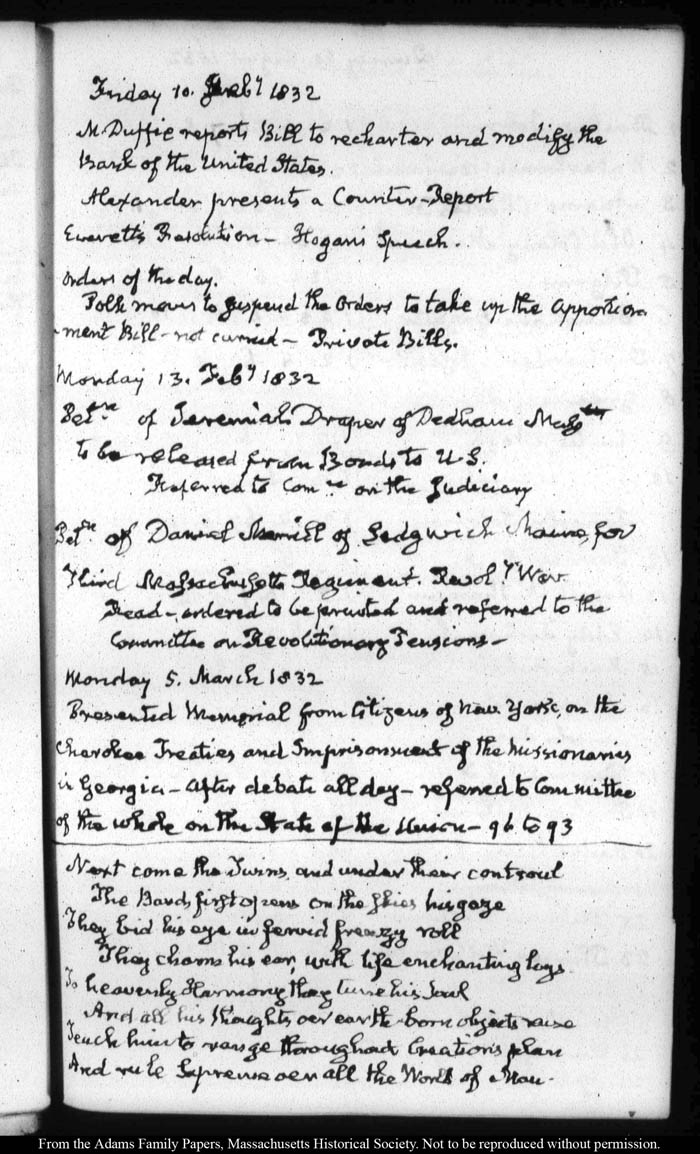 Friday 10. Feby 1832
McDuffie reports Bill to recharter and modify the
Bank of the United States.
Alexander presents a Counter-Report
Everett's Resolution – Hogan's Speech.
Orders of the day.
Polk moves to suspend the Orders to take up the Apportion-
ment Bill – not carried – Private Bills.
Monday 13. Feby 1832
Petn of Jeremiah Draper of Dedham Masstts
to be released from Bonds to U.S.
Referred to Comee on the Judiciary
Petn of Daniel Merrill of Sedgwick Maine, for
Third Massachusetts Regiment. Revoly War.
Read – ordered to be printed and referred to the
Committee on Revolutionary Pensions –
Monday 5. March 1832
Presented Memorial from Citizens of New York, on the
Cherokee Treaties and Imprisonment of the Missionaries
in Georgia – after debate all day – referred to Committee
of the whole on the State of the Union – 96 to 93
Next come the Twins, and under their controul
The Bard, first opens on the skies his gaze
They bid his eye in fervid frenzy roll
They charm his ear, with life enchanting lays.
To heavenly Harmony they tune his Soul
And all his thoughts oer earth-born objects raise
Teach him to range throughout Creation's plan
And rule Supreme oer all the World of Man.
From the Adams Family Papers, Massachusetts Historical Society. Not to be reproduced without permission.